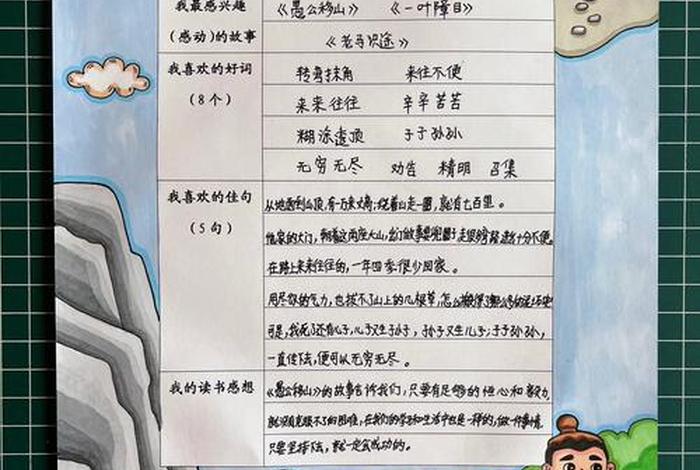 我最感兴趣 《愚公移山》 《一叶障目》
(感动)的故事 《老马识途》
我喜欢的好词 转弯抹角 来往不便
(8个) 来来往往 辛辛苦苦
糊涂透顶 子子孙孙
无穷无尽 劝告 精明 召集
我喜欢的佳句 从地面到山顶,有一万来丈高;绕着山走一圈,就有七百里。
(5句) 他家的大门,朝着这两座大山,出门做事要兜圈子走很多弯路,进出十分不便。
在路上来来往往的,一年四季很少回家。
用尽你的气力,也拔不了山上的几根草,怎么搬得了那么多的泥石块呢
可是,我死了还有儿子,儿子又生孙子,孙子又生儿子;子子孙孙,
一直传下去,便可以无穷无尽。
我的读书感想 《愚公移山》的故事告诉我们,只要有足够的恒心和毅力,
就没有克服不了的困难,在我们的学习和生活中也是一样的,做一件事情,
只要坚持下去,就一定会成功的。